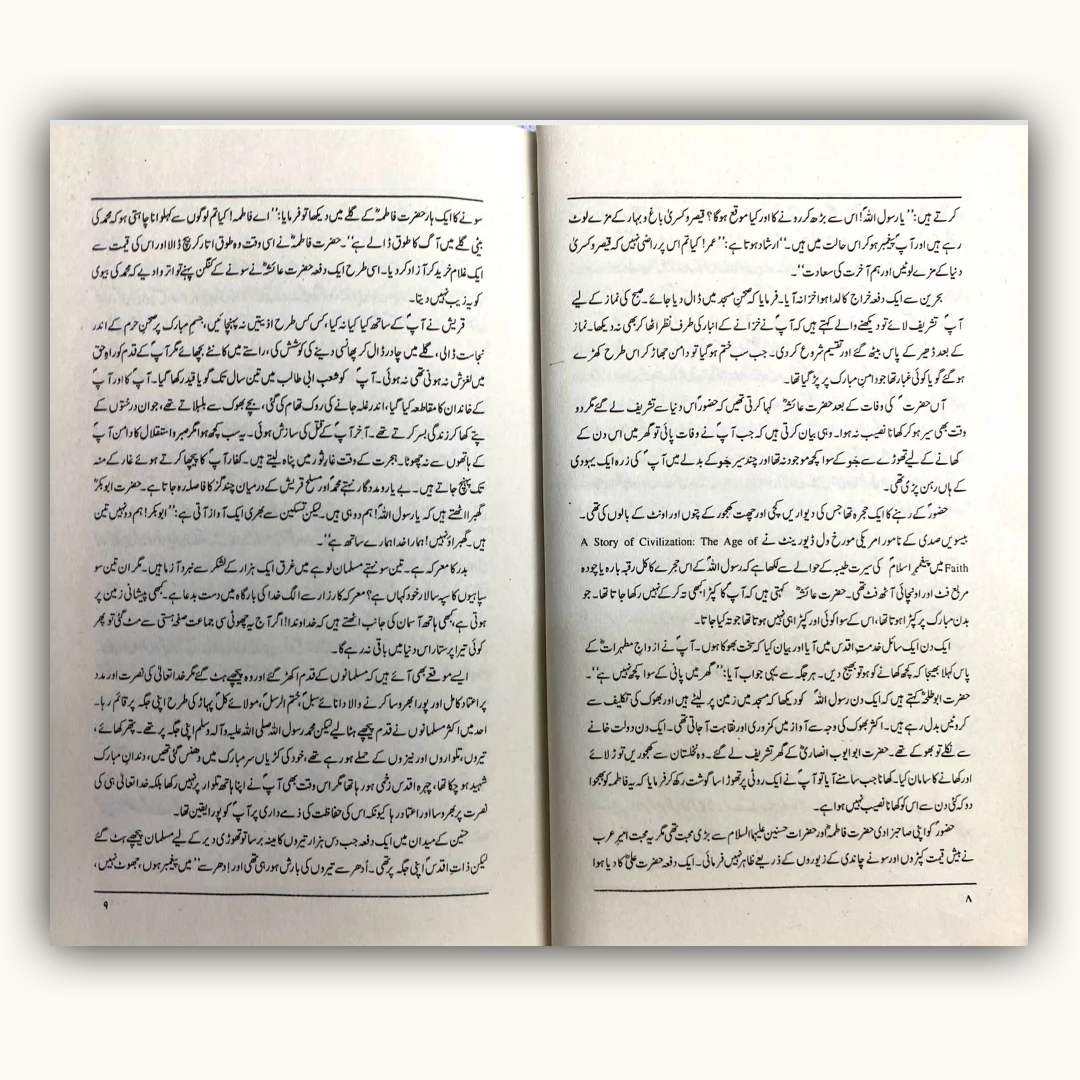 کرتے ہیں: ''یا رسول اللہؐ! اس سے بڑھ کر رونے کا اور کیا موقع ہوگا؟ قیصر و کسریٰ باغ و بہار کے مزے لوٹ
رہے ہیں اور آپؐ پیغمبر ہو کر اس حالت میں ہیں۔'' ارشاد ہوتا ہے: ''عمر! کیا تم اس پر راضی نہیں کہ قیصر و کسریٰ
دنیا کے مزے لوٹیں اور ہم آخرت کی سعادت''۔
بحرین سے ایک دفعہ خراج کا لدا ہوا خزانہ آیا۔ فرمایا کہ صحنِ مسجد میں ڈال دیا جائے۔ صبح کی نماز کے لیے
آپؐ تشریف لائے تو دیکھنے والے کہتے ہیں کہ آپؐ نے خزانے کے انبار کی طرف نظر اٹھا کر بھی نہ دیکھا۔ نماز
کے بعد ڈھیر کے پاس بیٹھ گئے اور تقسیم شروع کر دی۔ جب سب ختم ہو گیا تو دامن جھاڑ کر اس طرح کھڑے
ہو گئے گویا کوئی غبار تھا جو دامنِ مبارک پر پڑ گیا تھا۔
آں حضرتؐ کی وفات کے بعد حضرت عائشہؓ کہا کرتی تھیں کہ حضورؐ اس دنیا سے تشریف لے گئے مگر دو
وقت بھی سیر ہو کر کھانا نصیب نہ ہوا۔ وہی بیان کرتی ہیں کہ جب آپؐ نے وفات پائی تو گھر میں اس دن کے
کھانے کے لیے تھوڑے سے جَو کے سوا کچھ موجود نہ تھا اور چند سیر جَو کے بدلے میں آپؐ کی زرہ ایک یہودی
کے ہاں رہن پڑی تھی۔
حضورؐ کے رہنے کا ایک حجرہ تھا جس کی دیواریں کچی اور چھت کھجور کے پتوں اور اونٹ کے بالوں کی تھی۔
بیسویں صدی کے نامور امریکی مورخ ول ڈیورینٹ نے A Story of Civilization: The Age of
Faith میں پیغمبرِ اسلامؐ کی سیرت طیبہ کے حوالے سے لکھا ہے کہ رسول اللہؐ کے اس حجرے کا کل رقبہ بارہ یا چودہ
مربع فٹ اور اونچائی آٹھ فٹ تھی۔ حضرت عائشہؓ کہتی ہیں کہ آپؐ کا کپڑا کبھی تہ کر کے نہیں رکھا جاتا تھا۔ جو
بدن مبارک پر کپڑا ہوتا تھا، اس کے سوا کوئی اور کپڑا ہی نہیں ہوتا تھا جو تہ کیا جاتا۔
ایک دن ایک سائل خدمتِ اقدس میں آیا اور بیان کیا کہ سخت بھوکا ہوں۔ آپؐ نے ازواجِ مطہراتؓ کے
پاس کہلا بھیجا کہ کچھ کھانے کو ہو تو بھیج دیں۔ ہر جگہ سے یہی جواب آیا: ''گھر میں پانی کے سوا کچھ نہیں ہے''۔
حضرت ابو طلحہؓ کہتے ہیں کہ ایک دن رسول اللہؐ کو دیکھا کہ مسجد میں زمین پر لیٹے ہیں اور بھوک کی تکلیف سے
کروٹیں بدل رہے ہیں۔ اکثر بھوک کی وجہ سے آواز میں کمزوری اور نقاہت آ جاتی تھی۔ ایک دن دولت خانے
سے نکلے تو بھوکے تھے۔ حضرت ابو ایوب انصاریؓ کے گھر تشریف لے گئے۔ وہ نخلستان سے کھجوریں توڑ لائے
اور کھانے کا سامان کیا۔ کھانا جب سامنے آیا تو آپؐ نے ایک روٹی پر تھوڑا سا گوشت رکھ کر فرمایا کہ یہ فاطمہؓ کو بھجوا
دو کہ کئی دن سے اس کو کھانا نصیب نہیں ہوا ہے۔
حضورؐ کو اپنی صاحبزادی حضرت فاطمہؓ اور حضرات حسنین علیہما السلام سے بڑی محبت تھی مگر یہ محبت امیرِ عرب
نے بیش قیمت کپڑوں اور سونے چاندی کے زیوروں کے ذریعے ظاہر نہیں فرمائی۔ ایک دفعہ حضرت علیؓ کا دیا ہوا
۸
سونے کا ایک ہار حضرت فاطمہؓ کے گلے میں دیکھا تو فرمایا: ''اے فاطمہ! کیا تم لوگوں سے کہلوانا چاہتی ہو کہ محمدؐ کی
بیٹی گلے میں آگ کا طوق ڈالے ہے''۔ حضرت فاطمہؓ نے اسی وقت وہ طوق اتار کر بیچ ڈالا اور اس کی قیمت سے
ایک غلام خرید کر آزاد کر دیا۔ اسی طرح ایک دفعہ حضرت عائشہؓ نے سونے کے کنگن پہنے تو اتروا دیے کہ محمدؐ کی بیوی
کو یہ زیب نہیں دیتا۔
قریش نے آپؐ کے ساتھ کیا کیا نہ کیا، کس کس طرح اذیتیں نہ پہنچائیں، جسمِ مبارک پر صحنِ حرم کے اندر
نجاست ڈالی، گلے میں چادر ڈال کر پھانسی دینے کی کوشش کی، راستے میں کانٹے بچھائے مگر آپؐ کے قدم کو راہِ حق
میں لغزش نہ ہونی تھی نہ ہوئی۔ آپؐ کو شعب ابی طالب میں تین سال تک گویا قید رکھا گیا۔ آپؐ کا اور آپؐ
کے خاندان کا مقاطعہ کیا گیا، اندر غلہ جانے کی روک تھام کی گئی، بچے بھوک سے بلبلاتے تھے، جوان درختوں کے
پتے کھا کر زندگی بسر کرتے تھے۔ آخر آپؐ کے قتل کی سازش ہوئی۔ یہ سب کچھ ہوا مگر صبر و استقلال کا دامن آپؐ
کے ہاتھوں سے نہ چھوٹا۔ ہجرت کے وقت غارِ ثور میں پناہ لیتے ہیں۔ کفار آپؐ کا پیچھا کرتے ہوئے غار کے منہ
تک پہنچ جاتے ہیں۔ بے یار و مددگار نہتے محمدؐ اور مسلح قریش کے درمیان چند گز کا فاصلہ رہ جاتا ہے۔ حضرت ابوبکرؓ
گھبرا اٹھتے ہیں کہ یا رسول اللہؐ! ہم دو ہی ہیں۔ لیکن تسکین سے بھری ایک آواز آتی ہے: ''ابوبکر! ہم دو نہیں تین
ہیں۔ گھبراؤ نہیں! ہمارا خدا ہمارے ساتھ ہے''۔
بدر کا معرکہ ہے۔ تین سو نہتے مسلمان لوہے میں غرق ایک ہزار کے لشکر سے نبرد آزما ہیں۔ مگر ان تین سو
سپاہیوں کا سپہ سالار خود کہاں ہے؟ معرکہ کارزار سے الگ خدا کی بارگاہ میں دست بدعا ہے۔ کبھی پیشانی زمین پر
ہوتی ہے، کبھی ہاتھ آسمان کی جانب اٹھتے ہیں کہ خداوندا! اگر آج یہ چھوٹی سی جماعت صفحۂ ہستی سے مٹ گئی تو پھر
کوئی تیرا پرستار اس دنیا میں باقی نہ رہے گا۔
ایسے موقعے بھی آئے ہیں کہ مسلمانوں کے قدم اکھڑ گئے اور وہ پیچھے ہٹ گئے مگر خدا تعالیٰ کی نصرت اور مدد
پر اعتماد کامل اور پورا بھروسا کرنے والا دانائے سبلؐ، ختم الرسلؐ، مولائے کلؐ پہاڑ کی طرح اپنی جگہ پر قائم رہا۔
احد میں اکثر مسلمانوں نے قدم پیچھے ہٹا لیے لیکن محمد رسول اللہ صلی اللہ علیہ وآلہ وسلم اپنی جگہ پر تھے۔ پتھر کھائے،
تیروں، تلواروں اور نیزوں کے حملے ہو رہے تھے، خود کی کڑیاں سر مبارک میں دھنس گئی تھیں، دندانِ مبارک
شہید ہو چکا تھا، چہرہ اقدس زخمی ہو رہا تھا مگر اس وقت بھی آپؐ نے اپنا ہاتھ تلوار پر نہیں رکھا بلکہ خدا تعالیٰ ہی کی
نصرت پر بھروسا اور اعتماد رہا کیونکہ اس کی حفاظت کی ذمے داری پر آپؐ کو پورا یقین تھا۔
حنین کے میدان میں ایک دفعہ جب دس ہزار تیروں کا مینہ برسا تو تھوڑی دیر کے لیے مسلمان پیچھے ہٹ گئے
لیکن ذاتِ اقدسؐ اپنی جگہ پر تھی۔ اُدھر سے تیروں کی بارش ہو رہی تھی اور اِدھر سے ''میں پیغمبر ہوں، جھوٹ نہیں،
۹